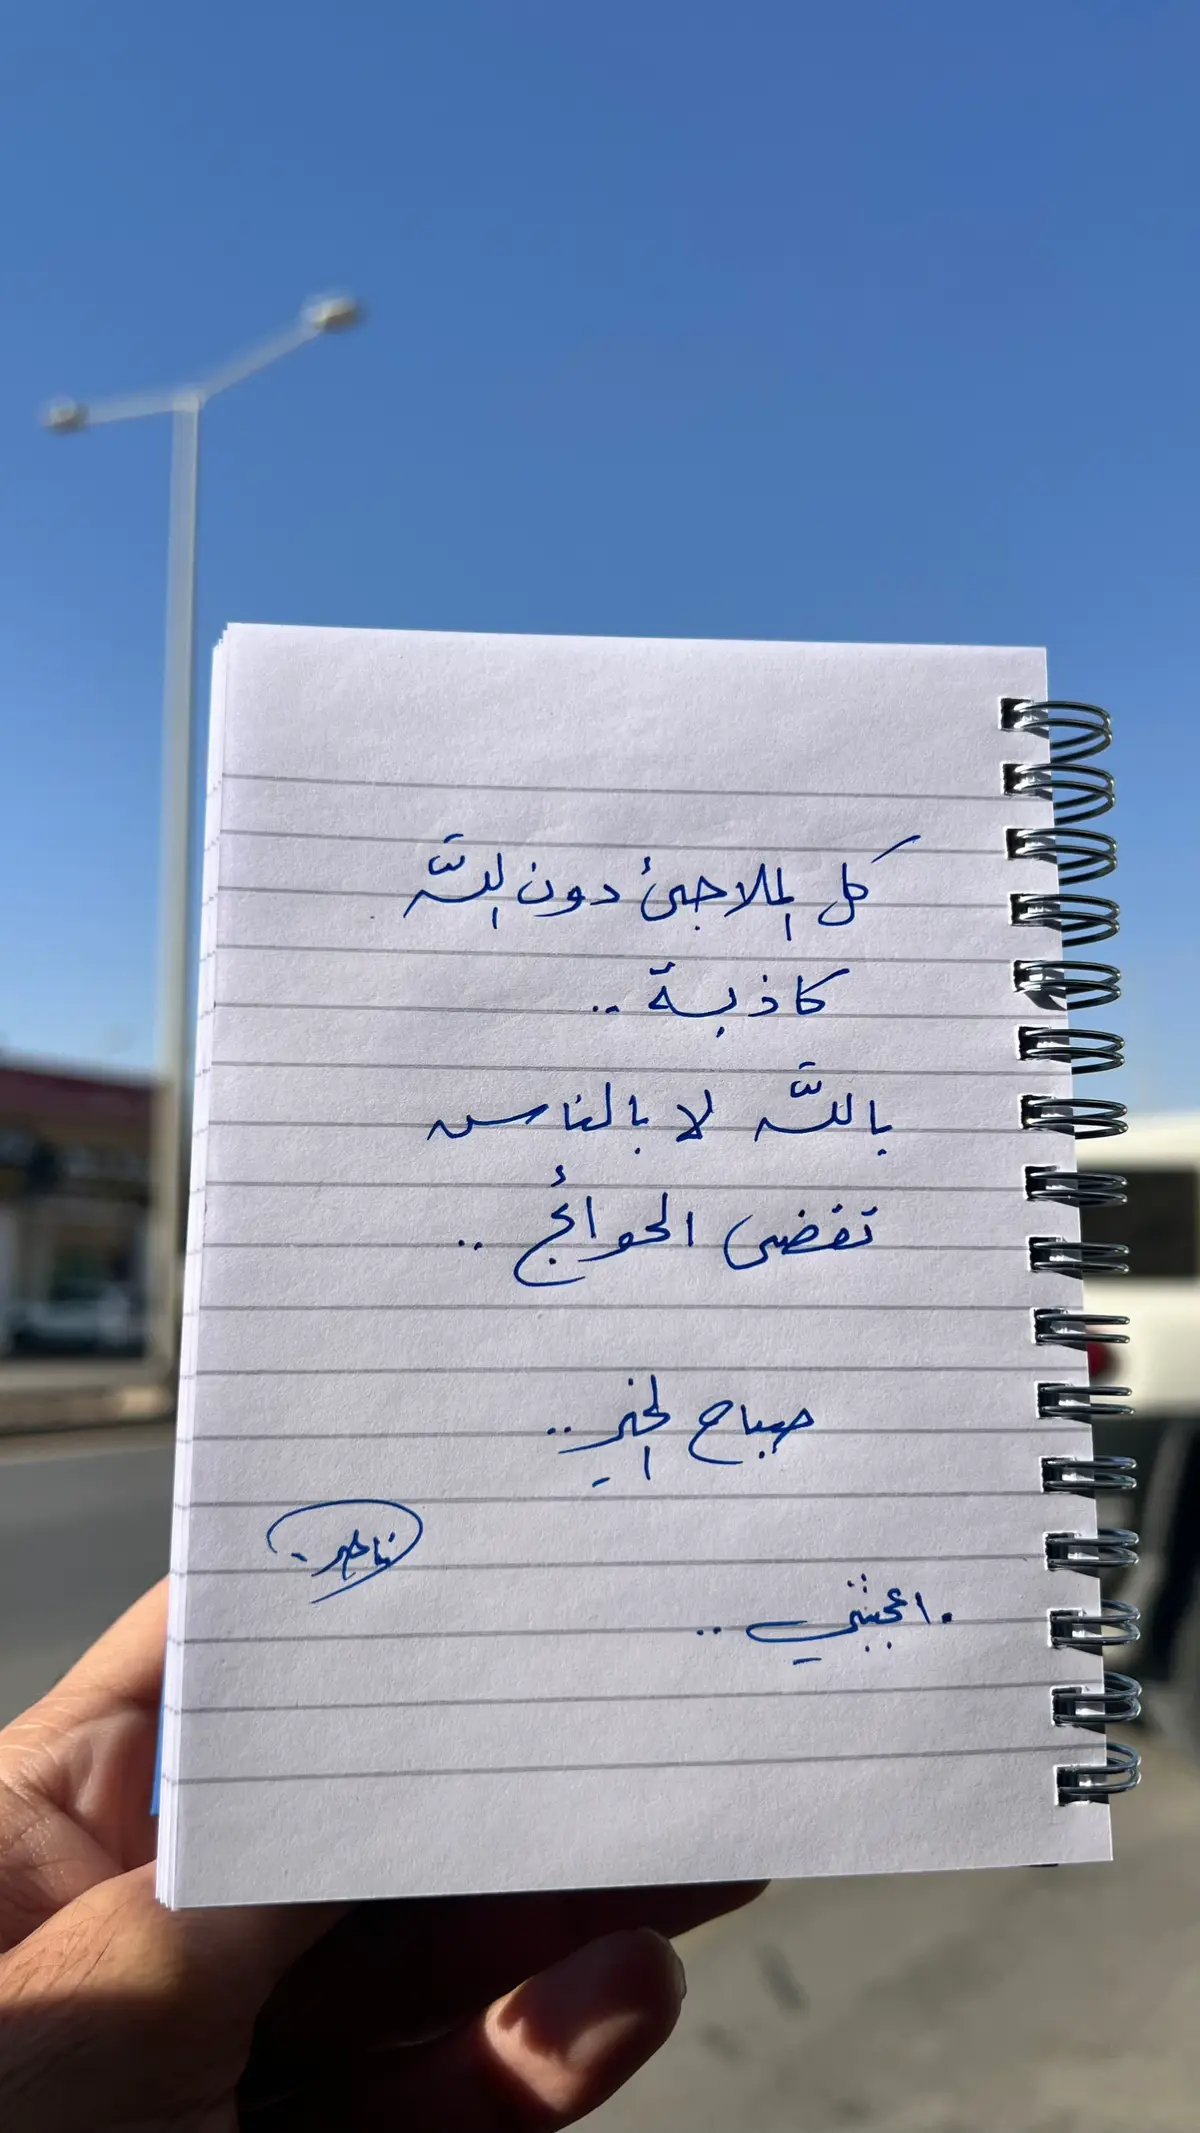 كل الملاجئ دون الله
كاذبة ..
بالله لا بالناس
تقضى الحوائج ..
صباح الخير ..
. اعجبتني ..